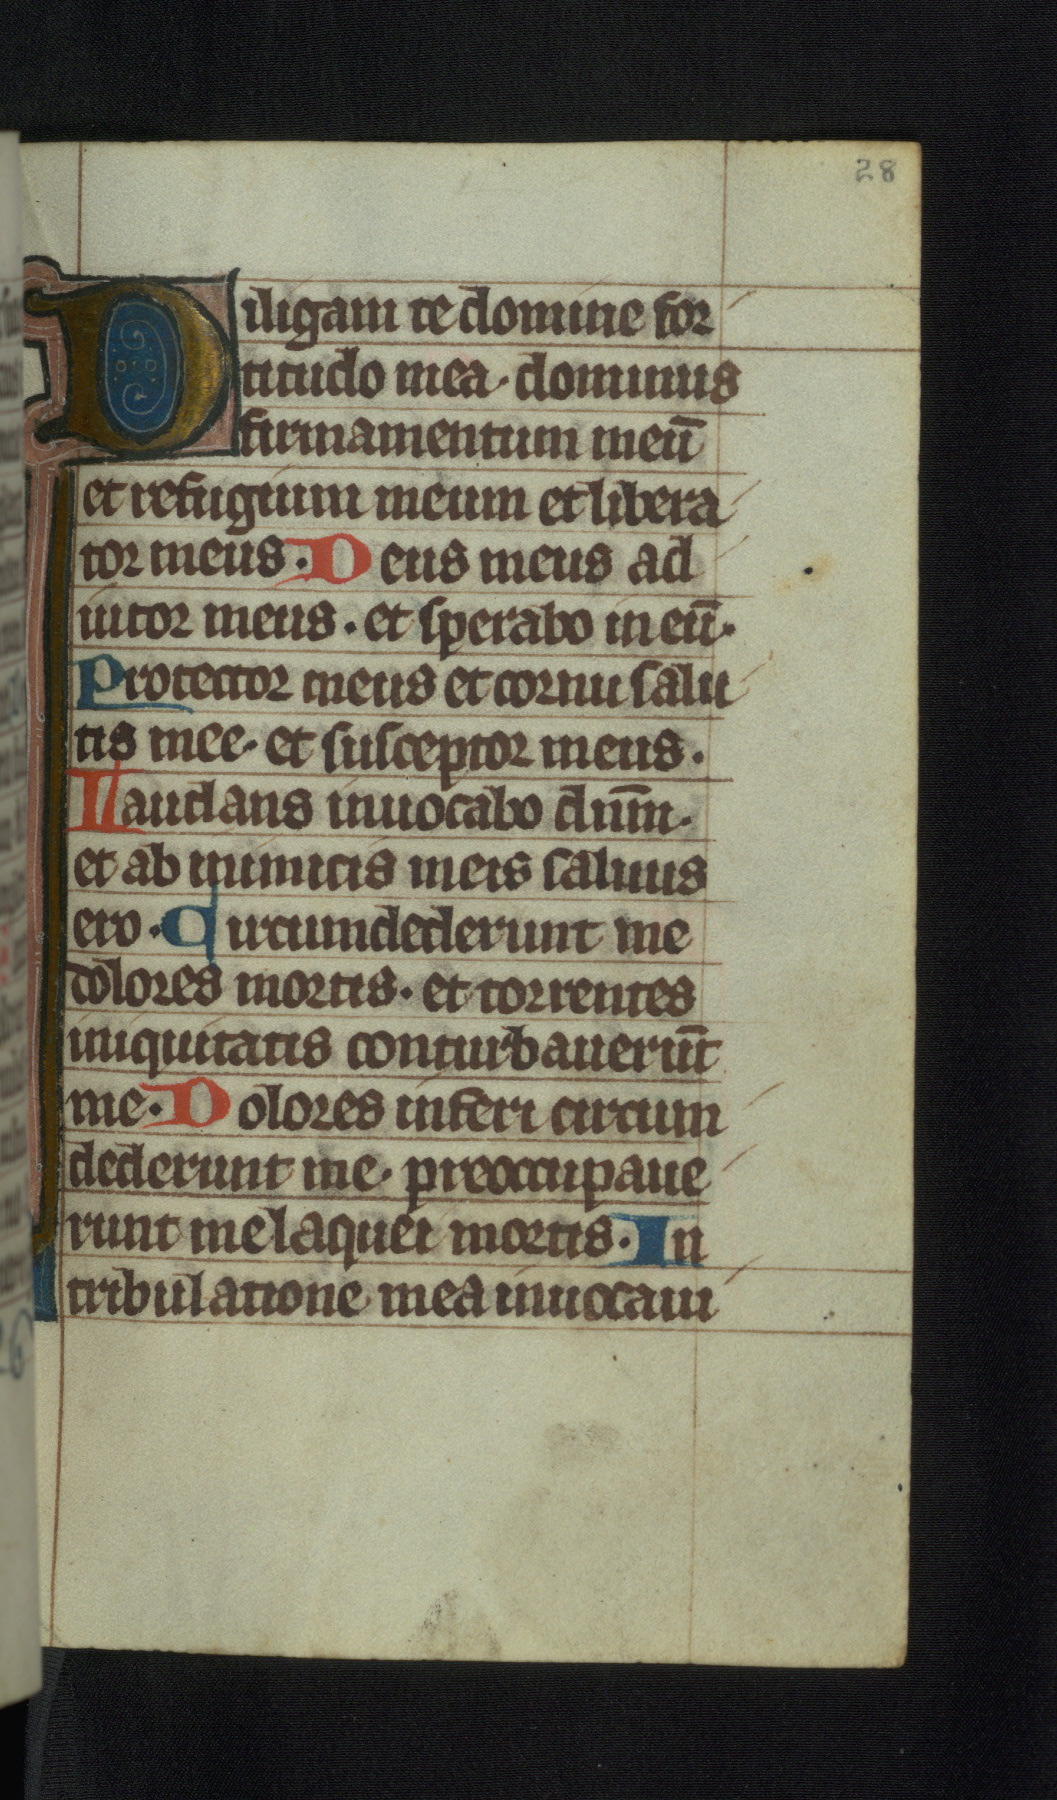 28
Diligam te domine for
titudo mea · dominus
firmamentum meū
et refugium meum et libera
tor meus · Deus meus ad
iutor meus · et sperabo in eū ·
Protector meus et cornu salu
tis mee · et susceptor meus ·
Laudans inuocabo dūm ·
et ab inimicis meis saluus
ero · Circumdederunt me
dolores mortis · et torrentes
iniquitatis conturbauerūt
me · Dolores inferi circum
dederunt me · preoccupaue
runt me laquei mortis · In
tribulatione mea inuocaui